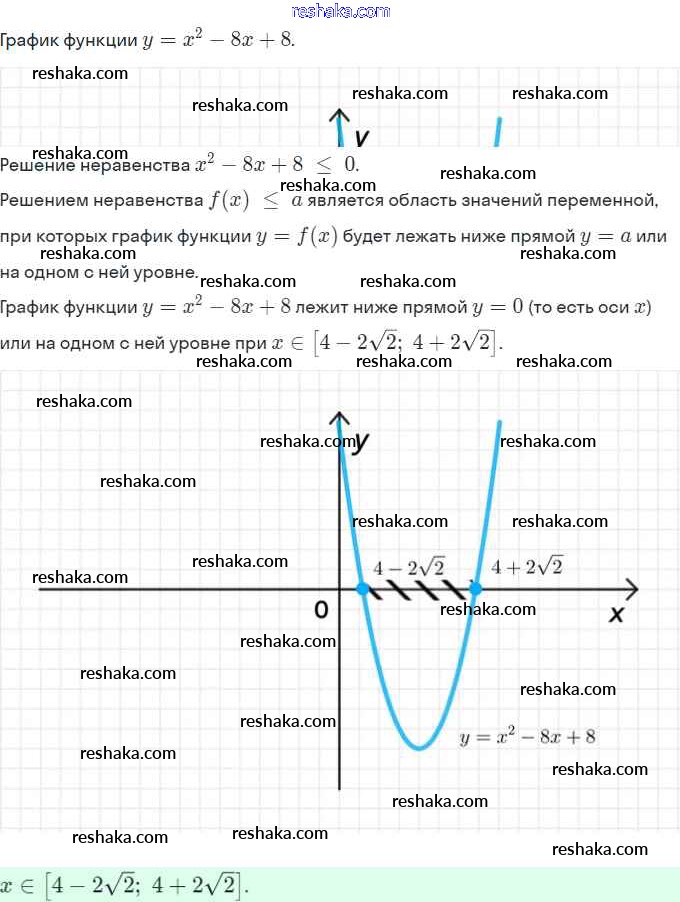 reshaka.com
График функции y = x² − 8x + 8.
reshaka.com
reshaka.com reshaka.com
reshaka.com
y
reshaka.com
Решение неравенства x² − 8x + 8 ≤ 0.
reshaka.com
reshaka.com
Решением неравенства f(x) ≤ a является область значений переменной,
при которых график функции y = f(x) будет лежать ниже прямой y = a или
reshaka.com reshaka.com
на одном с ней уровне.
reshaka.com reshaka.com
График функции y = x² − 8x + 8 лежит ниже прямой y = 0 (то есть оси x)
или на одном с ней уровне при x ∈ [4 − 2√2; 4 + 2√2].
reshaka.com reshaka.com reshaka.com
reshaka.com
reshaka.com y reshaka.com
reshaka.com
reshaka.com reshaka.com
reshaka.com
4 − 2√2 4 + 2√2
reshaka.com
0 reshaka.com x
reshaka.com
reshaka.com
reshaka.com
reshaka.com
y = x² − 8x + 8
reshaka.com
reshaka.com
reshaka.com
reshaka.com reshaka.com
reshaka.com
x ∈ [4 − 2√2; 4 + 2√2].